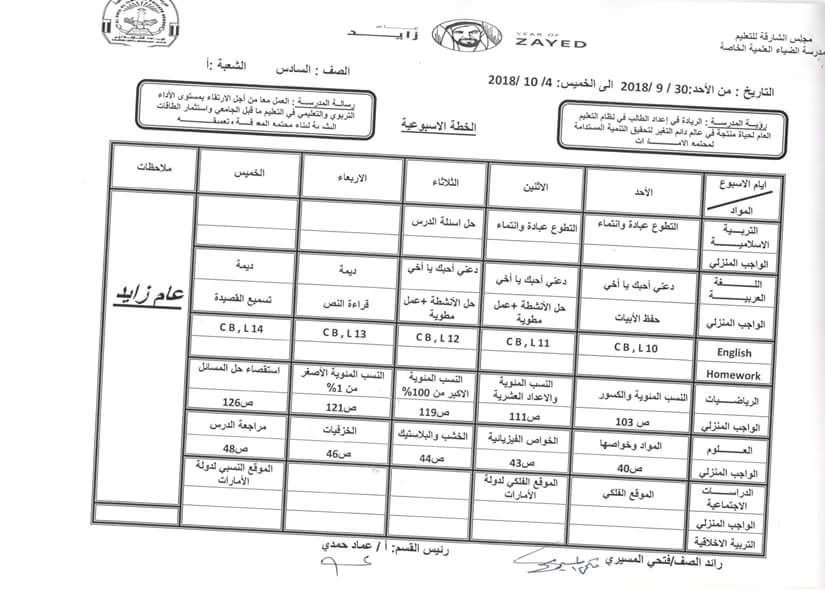 عام
زايد
YEAR OF
ZAYED
مجلس الشارقة للتعليم
مدرسة الضياء العلمية الخاصة
الصف : السادس الشعبة : أ
التاريخ : من الأحد: 30/ 9 /2018 الى الخميس: 4/ 10 /2018
رسالة المدرسة : العمل معا من أجل الارتقاء بمستوى الأداء
التربوي والتعليمي في التعليم ما قبل الجامعي واستثمار الطاقات
الخطة الاسبوعية
رؤية المدرسة : الريادة في إعداد الطالب في نظام التعليم
العام لحياة منتجة في عالم دائم التغير لتحقيق التنمية المستدامة
لمجتمع الامارات
ايام الاسبوع
المواد
الأحد
الاثنين
الثلاثاء
الاربعاء
الخميس
ملاحظات
التربية
الاسلامية
التطوع عبادة وانتماء
التطوع عبادة وانتماء
حل اسئلة الدرس
الواجب المنزلي
اللغة
العربية
دعني أحبك يا أخي
دعني أحبك يا أخي
دعني أحبك يا أخي
ديمة
ديمة
الواجب المنزلي
حفظ الأبيات
حل الأنشطة +عمل
مطوية
حل الأنشطة +عمل
مطوية
قراءة النص
تسميع القصيدة
عام زايد
English
C B , L 10
C B , L 11
C B , L 12
C B , L 13
C B , L 14
Homework
الرياضيات
النسب المئوية والكسور
النسب المئوية
والاعداد العشرية
النسب المئوية
الاكبر من 100%
النسب المئوية الأصغر
من 1%
استقصاء حل المسائل
الواجب المنزلي
ص 103
ص111
ص119
ص121
ص126
العلوم
المواد وخواصها
الخواص الفيزيائية
الخشب والبلاستيك
الخزفيات
مراجعة الدرس
الواجب المنزلي
ص40
ص43
ص44
ص46
ص48
الدراسات
الاجتماعية
الموقع الفلكي
الموقع الفلكي لدولة
الأمارات
الموقع النسبي لدولة
الأمارات
الواجب المنزلي
التربية الاخلاقية
رائد الصف/فتحي المسيري
رئيس القسم: أ / عماد حمدي